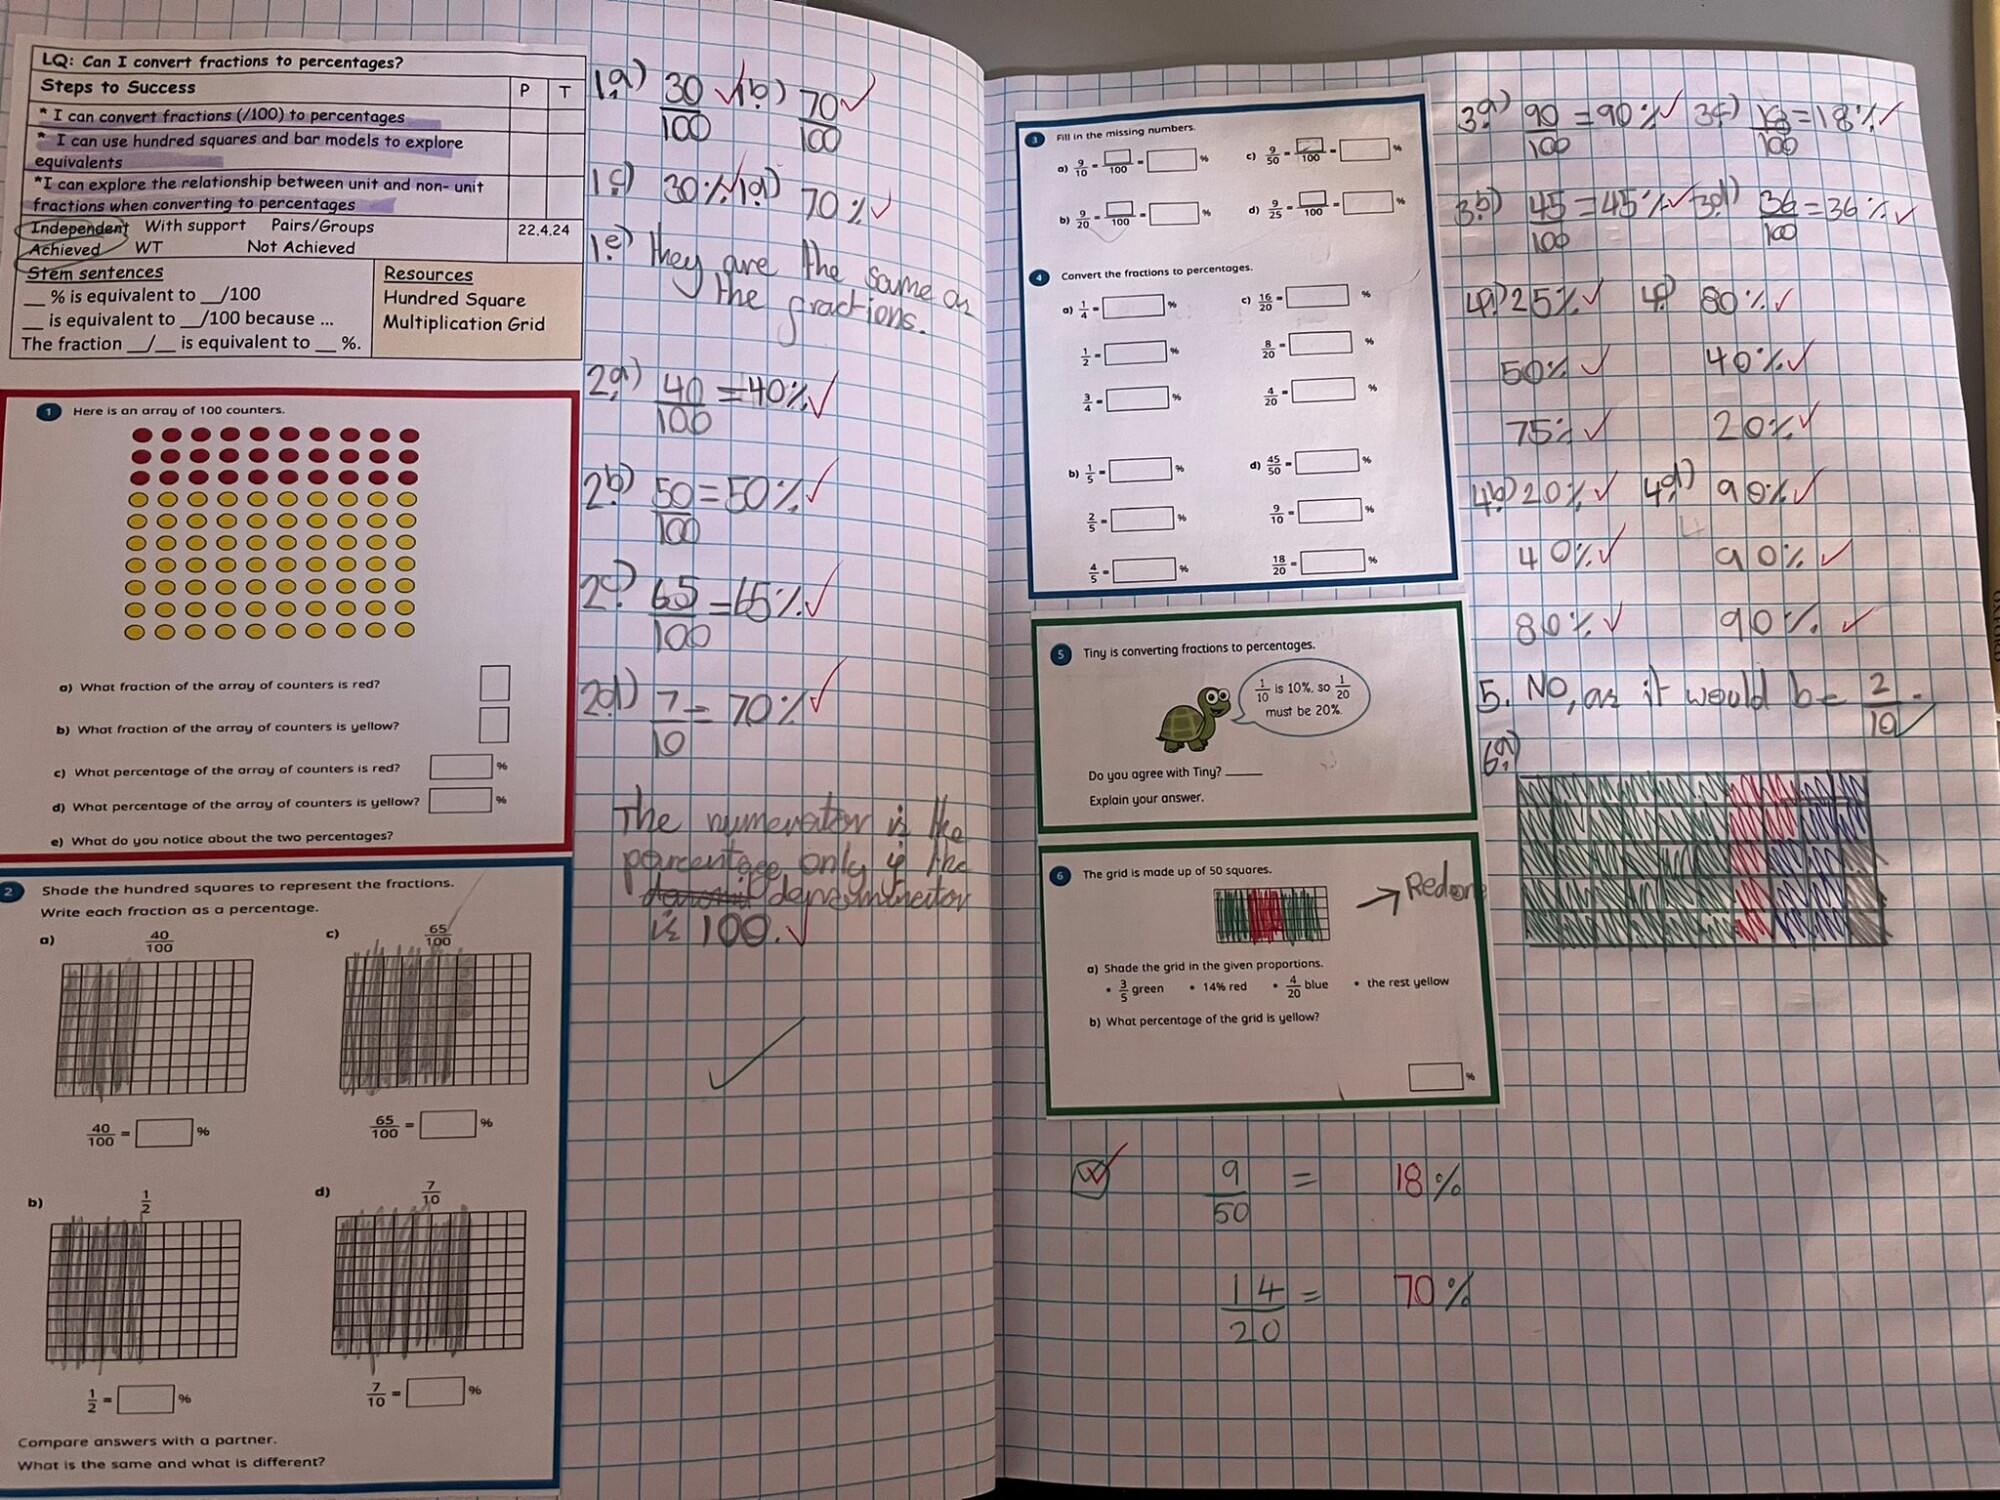 LQ: Can I convert fractions to percentages?
Steps to Success
P T
* I can convert fractions (/100) to percentages
* I can use hundred squares and bar models to explore
equivalents
*I can explore the relationship between unit and non- unit
fractions when converting to percentages
Independent With support Pairs/Groups
22.4.24
Achieved WT Not Achieved
Stem sentences
__ % is equivalent to __/100
__ is equivalent to __/100 because ...
The fraction __/__ is equivalent to __ %.
Resources
Hundred Square
Multiplication Grid
1 Here is an array of 100 counters.
a) What fraction of the array of counters is red?
b) What fraction of the array of counters is yellow?
c) What percentage of the array of counters is red? %
d) What percentage of the array of counters is yellow? %
e) What do you notice about the two percentages?
2 Shade the hundred squares to represent the fractions.
Write each fraction as a percentage.
a) 40/100
c) 65/100
40/100 = %
65/100 = %
b) 1/2
d) 7/10
1/2 = %
7/10 = %
Compare answers with a partner.
What is the same and what is different?
1a) 30/100 1b) 70/100
1c) 30% 1d) 70%
1e) They are the same as
the fractions.
2a) 40/100 = 40%
2b) 50/100 = 50%
2c) 65/100 = 65%
2d) 7/10 = 70%
The numerator is the
percentage only if the
denominator
is 100.
3 Fill in the missing numbers.
a) 9/10 = /100 = %
c) 9/50 = /100 = %
b) 9/20 = /100 = %
d) 9/25 = /100 = %
4 Convert the fractions to percentages.
a) 1/4 = %
c) 16/20 = %
1/2 = %
8/20 = %
3/4 = %
4/20 = %
b) 1/5 = %
d) 45/50 = %
2/5 = %
9/10 = %
4/5 = %
18/20 = %
5 Tiny is converting fractions to percentages.
1/10 is 10%, so 1/20
must be 20%.
Do you agree with Tiny? ____
Explain your answer.
6 The grid is made up of 50 squares.
→ Redone
a) Shade the grid in the given proportions.
• 3/5 green • 14% red • 4/20 blue • the rest yellow
b) What percentage of the grid is yellow?
%
3a) 90/100 = 90% 3c) 18/100 = 18%
3b) 45/100 = 45% 3d) 36/100 = 36%
4a) 25% 4c) 80%
50% 40%
75% 20%
4b) 20% 4d) 90%
40% 90%
80% 90%
5. No, as it would be 2/10.
6a)
9/50 = 18%
14/20 = 70%